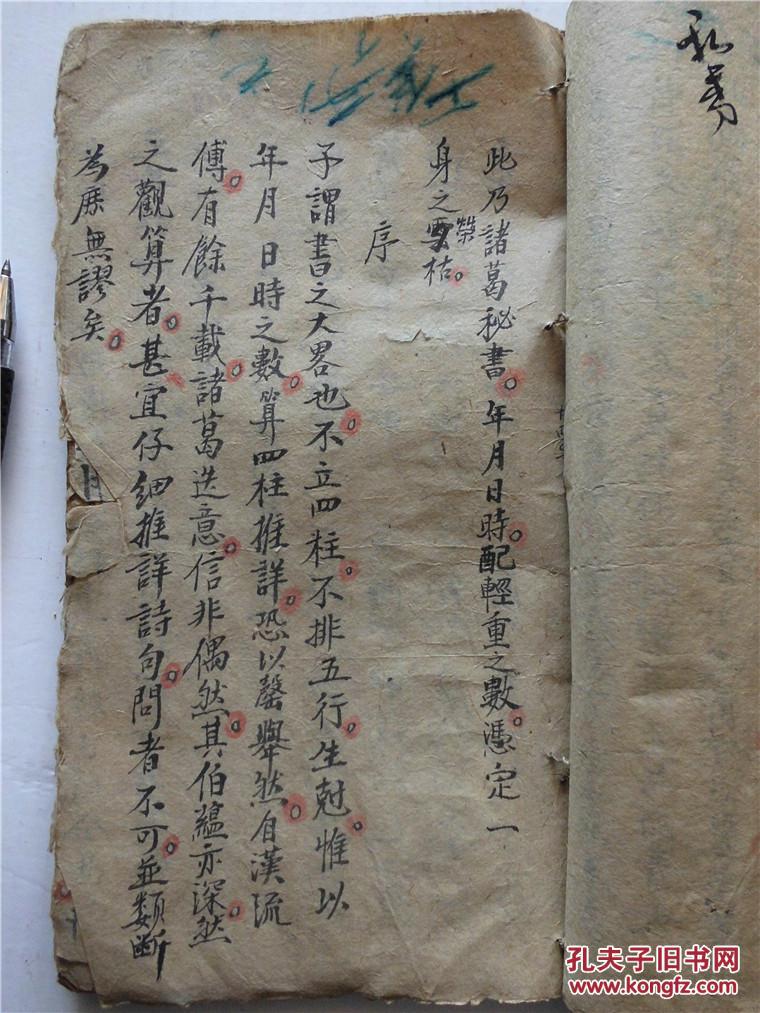 此乃諸葛秘書。年月日時。配輕重之數。憑定一
身之榮枯。
序
予謂書之大畧也。不立四柱。不排五行。生尅。惟以
年月日時之數。算四柱推詳。恐以罄舉然。自漢流
傳。有餘千載。諸葛迭意。信非偶然。其伯蘊亦深然。
之觀算者。甚宜仔細推詳詩句。問者不可。並類斷
為庶無謬矣。
孔夫子旧书网
www.kongfz.com